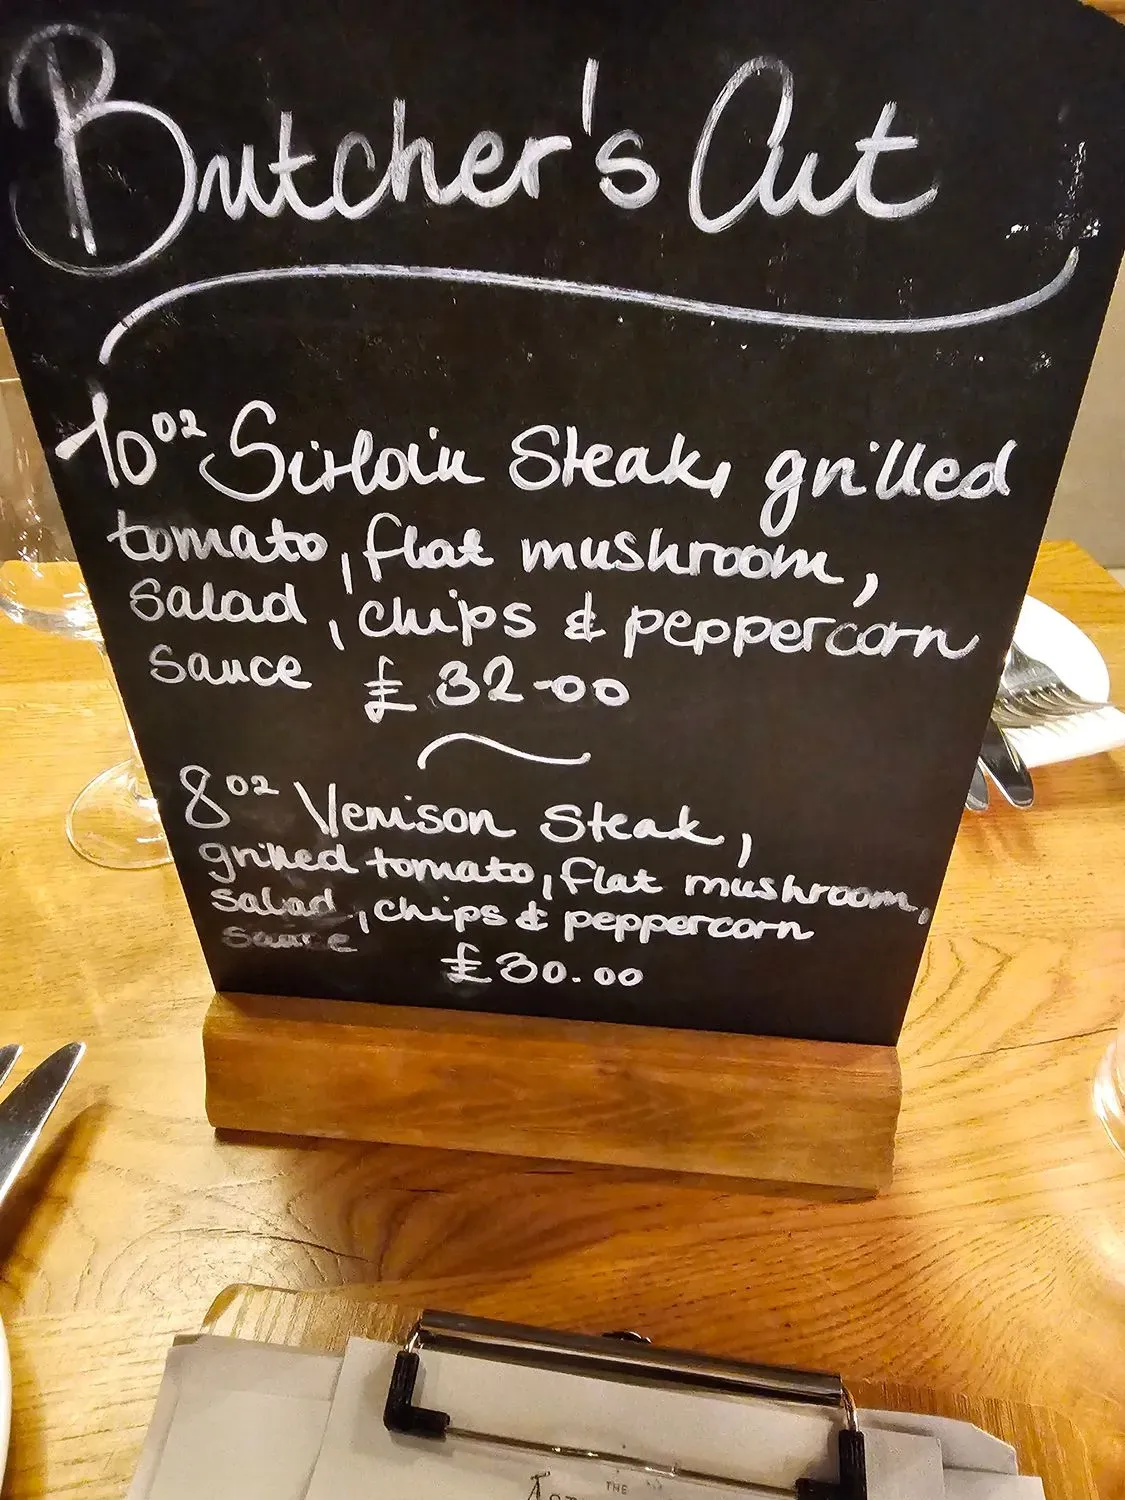 Butcher's Cut
10oz Sirloin Steak, grilled
tomato, flat mushroom,
salad, chips & peppercorn
sauce £32-00
8oz Venison Steak,
grilled tomato, flat mushroom,
salad, chips & peppercorn
sauce
£30.00
THE